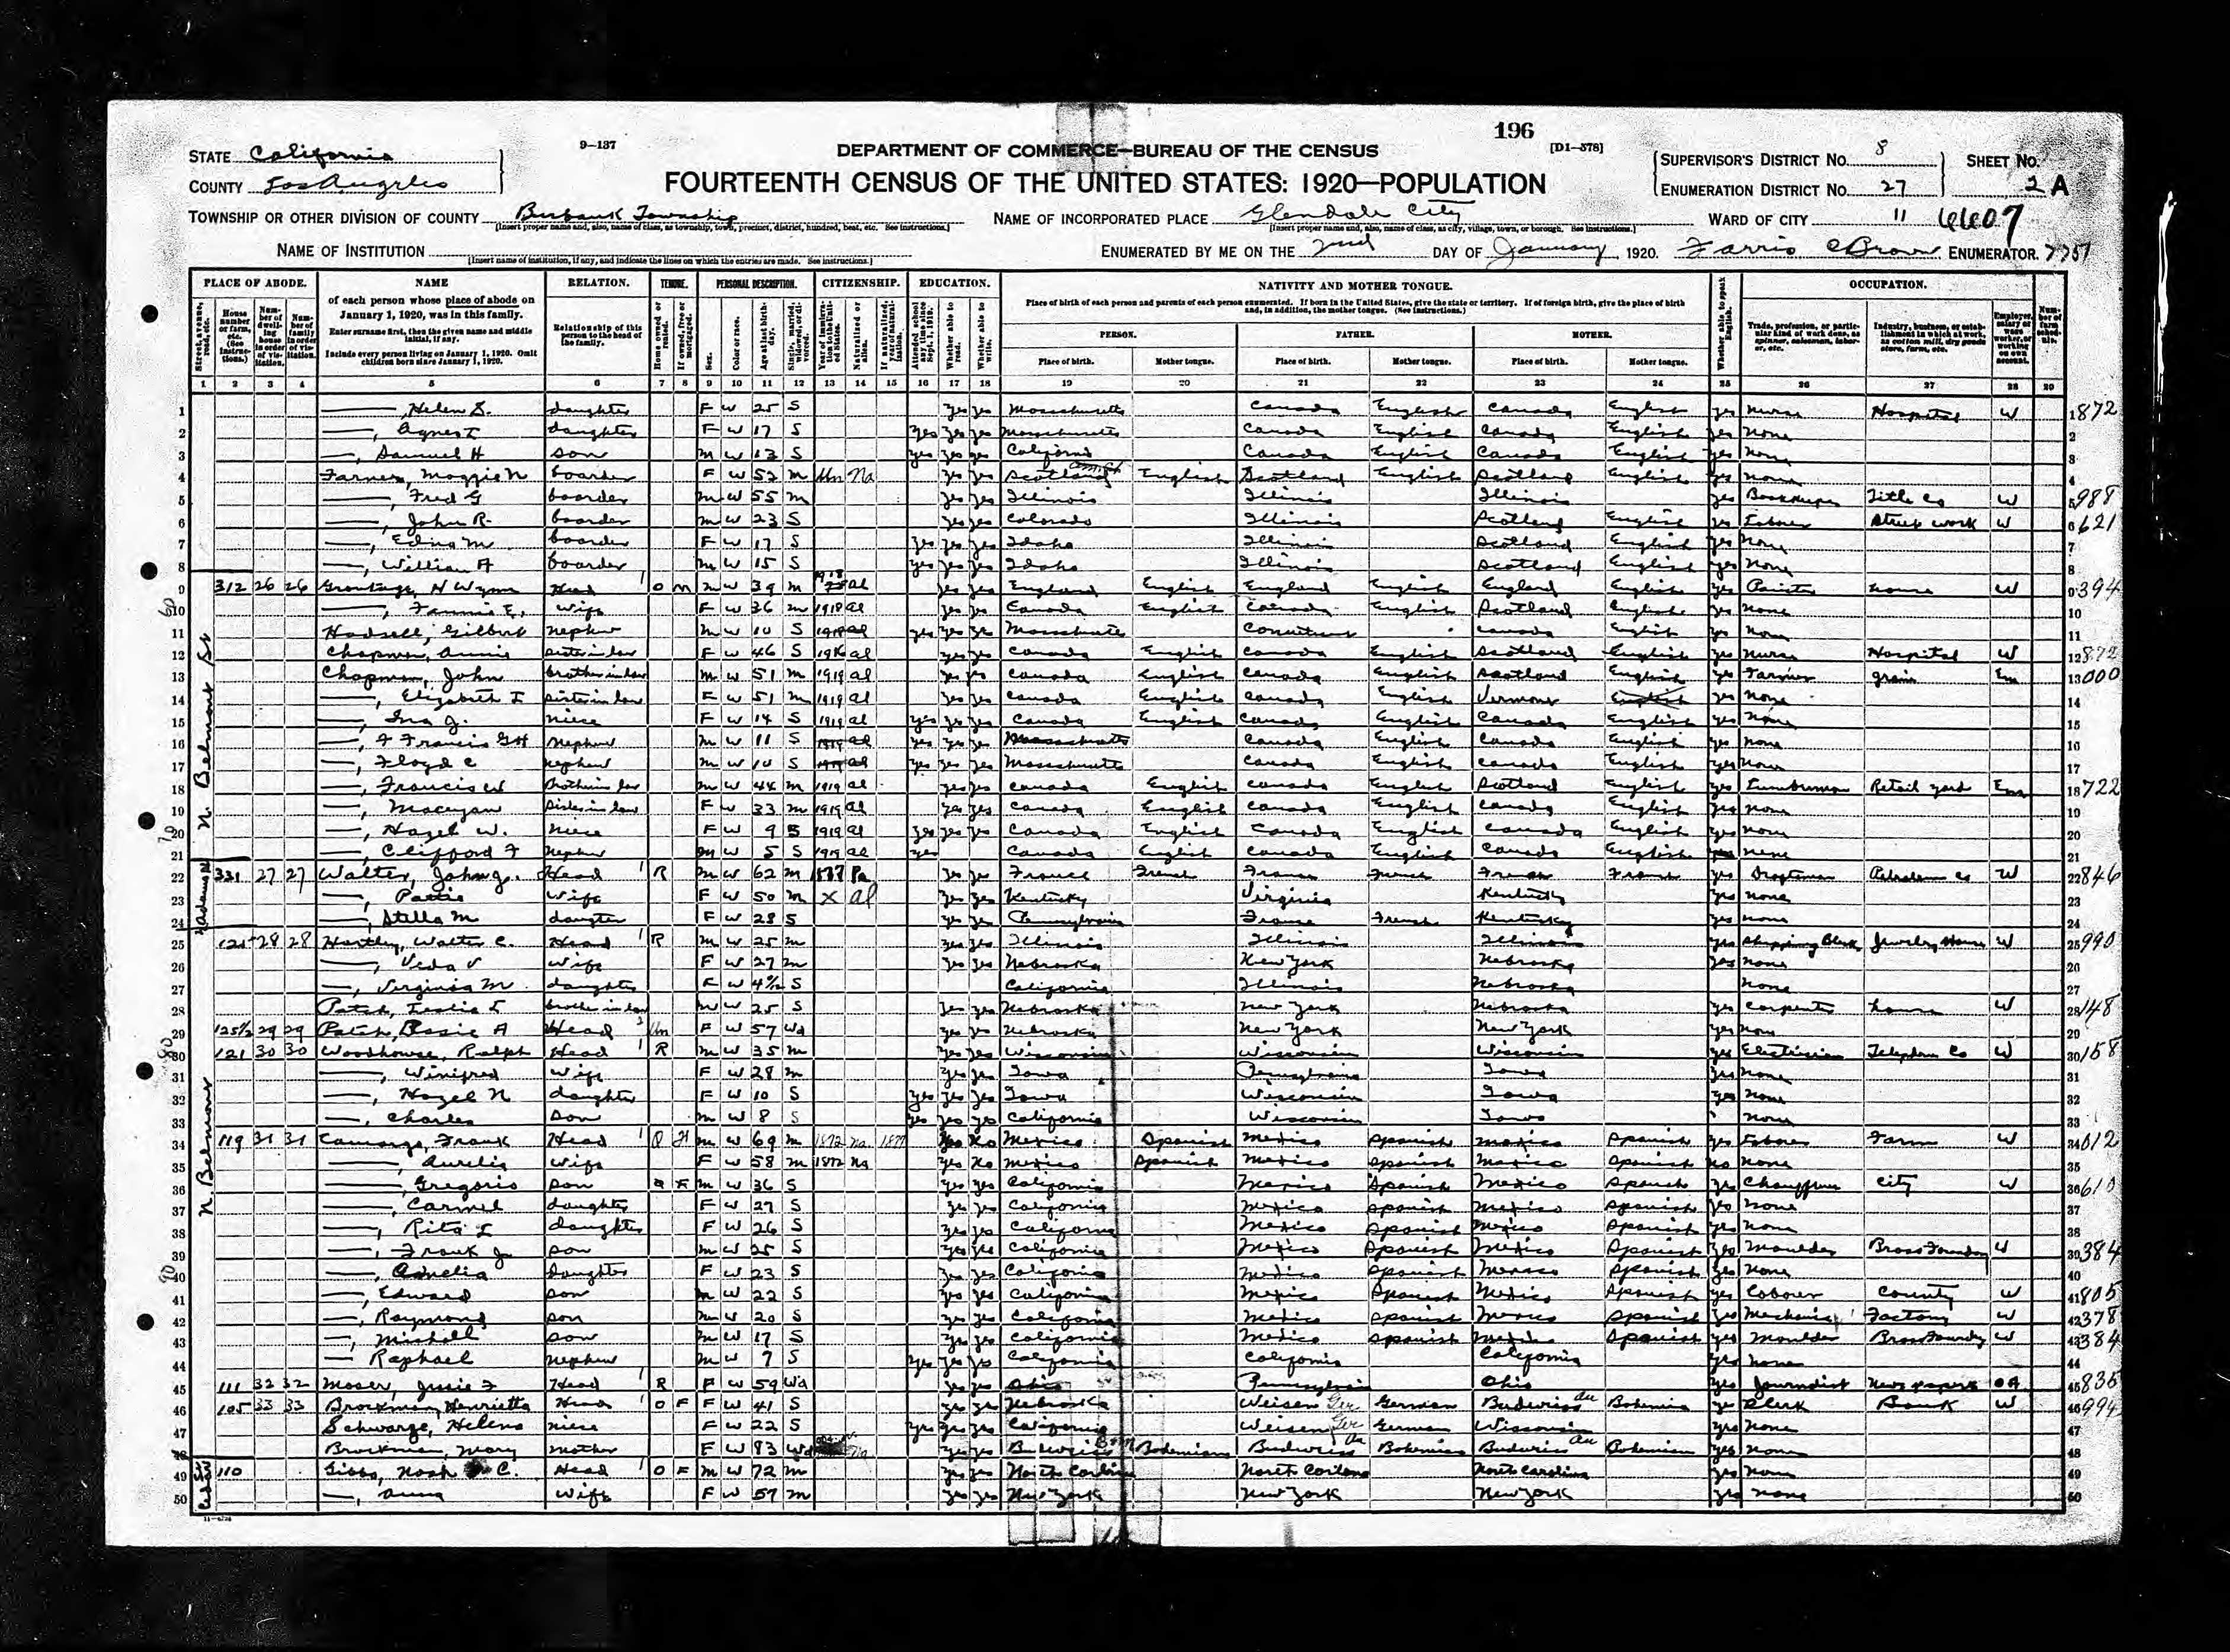 196
STATE California
9-137
DEPARTMENT OF COMMERCE—BUREAU OF THE CENSUS
[D1-578]
SUPERVISOR'S DISTRICT NO. 8
SHEET NO.
COUNTY Los Angeles
FOURTEENTH CENSUS OF THE UNITED STATES: 1920—POPULATION
ENUMERATION DISTRICT NO. 27
2 A
TOWNSHIP OR OTHER DIVISION OF COUNTY Burbank Township
NAME OF INCORPORATED PLACE Glendale City
WARD OF CITY 11 6607
[Insert proper name and, also, name of class, as township, town, precinct, district, hundred, beat, etc. See instructions.]
[Insert proper name and, also, name of class, as city, village, town, or borough. See instructions.]
NAME OF INSTITUTION
[Insert name of institution, if any, and indicate the lines on which the entries are made. See instructions.]
ENUMERATED BY ME ON THE 2nd DAY OF January, 1920. Farris C Brown ENUMERATOR.
PLACE OF ABODE. NAME RELATION. TENURE. PERSONAL DESCRIPTION. CITIZENSHIP. EDUCATION. NATIVITY AND MOTHER TONGUE. OCCUPATION.
of each person whose place of abode on January 1, 1920, was in this family.
Enter surname first, then the given name and middle initial, if any.
Include every person living on January 1, 1920. Omit children born since January 1, 1920.
Relationship of this person to the head of the family.
Place of birth of each person and parents of each person enumerated. If born in the United States, give the state or territory. If of foreign birth, give the place of birth and, in addition, the mother tongue. (See instructions.)
PERSON. FATHER. MOTHER.
Place of birth. Mother tongue. Place of birth. Mother tongue. Place of birth. Mother tongue.
1 2 3 4 5 6 7 8 9 10 11 12 13 14 15 16 17 18 19 20 21 22 23 24 25 26 27 28 29
1 ——, Helen S. daughter F W 25 S yes yes Massachusetts Canada English Canada English yes nurse Hospital W 872
2 ——, Agnes I daughter F W 17 S yes yes yes Massachusetts Canada English Canada English yes none
3 ——, Samuel H son M W 13 S yes yes yes California Canada English Canada English yes none
4 Maggie N boarder F W 52 M Un Na yes yes Scotland English Scotland English Scotland English yes none
5 ——, Fred G boarder M W 55 M yes yes Illinois Illinois Illinois yes Bookkeeper Title Co W 988
6 ——, John R. boarder M W 23 S yes yes Colorado Illinois Scotland English yes Laborer Street work W 621
7 ——, Edna M boarder F W 17 S yes yes yes Idaho Illinois Scotland English yes none
8 ——, William A boarder M W 15 S yes yes yes Idaho Illinois Scotland English yes none
9 312 26 26 H Wynn Head O M M W 39 M Al yes yes England English England English England English yes Painter house W 394
10 ——, Fannie E. wife F W 36 M 1918 Al yes yes Canada English Canada English Scotland English yes none
11 Hadsell, Gilbert nephew M W 10 S Al yes yes yes Massachusetts Connecticut Canada English yes none
12 Chapman, Annie sister in law F W 46 S Al yes yes Canada English Canada English Scotland English yes nurse Hospital W 872
13 Chapman, John brother in law M W 51 M 1919 Al yes yes Canada English Canada English Scotland English yes Farmer grain Em 000
14 ——, Elizabeth I sister in law F W 51 M 1919 Al yes yes Canada English Canada English Vermont English yes none
15 ——, Ina J. niece F W 14 S 1919 Al yes yes yes Canada English Canada English Canada English yes none
16 ——, Francis G H nephew M W 11 S Al yes yes yes Massachusetts Canada English Canada English yes none
17 ——, Floyd C nephew M W 10 S Al yes yes yes Massachusetts Canada English Canada English yes none
18 ——, Francis W brother in law M W 44 M 1919 Al yes yes Canada English Canada English Scotland English yes Lumberman Retail yard Em 722
19 ——, sister in law F W 33 M 1919 Al yes yes Canada English Canada English Canada English yes none
20 ——, Hazel W. niece F W 9 S 1919 Al yes yes yes Canada English Canada English Canada English yes none
21 ——, Clifford F nephew M W 5 S 1919 Al yes Canada English Canada English Canada English none
22 331 27 27 Walter, John J. Head R M W 62 M Pa yes yes France French France French France yes Draftsman Petroleum Co W 846
23 ——, Pattie wife F W 50 M X Al yes yes Kentucky Virginia Kentucky yes none
24 ——, Stella M daughter F W 28 S yes yes Pennsylvania France French Kentucky yes none
25 28 28 Hartley, Walter C. Head R M W 25 M yes yes Illinois Illinois Illinois yes Shipping Clerk Jewelry House W 990
26 ——, Veda V wife F W 27 M yes yes Nebraska New York Nebraska yes none
27 ——, Virginia M. daughter F W S California Illinois Nebraska none
28 Patch, Leslie L brother in law M W 25 S yes yes Nebraska New York Nebraska yes Carpenter house W 148
29 125½ 29 29 Patch, A Head Un F W 57 Wd yes yes Nebraska New York New York yes none
30 121 30 30 Woodhouse, Ralph Head R M W 35 M yes yes Wisconsin Wisconsin Wisconsin yes Electrician Telephone Co W 158
31 ——, Winifred wife F W 28 M yes yes Iowa Pennsylvania Iowa yes none
32 ——, Hazel N daughter F W 10 S yes yes yes Iowa Wisconsin Iowa yes none
33 ——, Charles son M W 8 S yes yes yes California Wisconsin Iowa none
34 119 31 31 Camargo, Frank Head O M W 69 M 1872 Na No Mexico Spanish Mexico Spanish Mexico Spanish yes Laborer Farm W 012
35 ——, Aurelia wife F W 58 M 1872 Na yes No Mexico Spanish Mexico Spanish Mexico Spanish No none
36 ——, Gregorio son M W 36 S yes yes California Mexico Spanish Mexico Spanish yes Chauffeur City W 610
37 ——, Carmel daughter F W 27 S yes yes California Mexico Spanish Mexico Spanish yes none
38 ——, Rita L daughter F W 26 S yes yes California Mexico Spanish Mexico Spanish yes none
39 ——, Frank Jr son M W 25 S yes yes California Mexico Spanish Mexico Spanish yes Moulder Brass Foundry W 384
40 ——, daughter F W 23 S yes yes California Mexico Spanish Mexico Spanish yes none
41 ——, Edward son M W 22 S yes yes California Mexico Spanish Mexico Spanish yes Laborer County W 805
42 ——, Raymond son M W 20 S yes yes California Mexico Spanish Mexico Spanish yes Mechanic Factory W 378
43 ——, Mishall son M W 17 S yes yes California Mexico Spanish Mexico Spanish yes Moulder Brass Foundry W 384
44 —— Raphael nephew M W 7 S yes yes yes California California California yes none
45 111 32 32 Moser, Jessie F Head R F W 59 Wd yes yes Ohio Pennsylvania Ohio yes Journalist Newspapers OA 835
46 105 33 33 Brockman, Henrietta Head O F F W 41 S yes yes Nebraska Weisen Ger German Budweiss Au Bohemia yes Clerk Bank W 994
47 Schwarze, Helena niece F W 22 S yes yes yes California Weisen Ger German Wisconsin yes none
48 Brockman, Mary mother F W 83 Wd Na yes yes Budweiss Bohemian Budweiss Bohemian Budweiss Au Bohemian yes none
49 110 Gibbs, Noah C. Head O F M W 72 M yes yes North Carolina North Carolina North Carolina yes none
50 ——, Anna wife F W 57 M yes yes New York New York New York yes none
N Belmont St
N. Belmont
11-6724